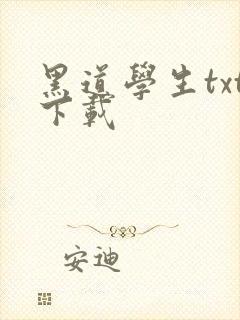 黑道學生txt
下載
安迪